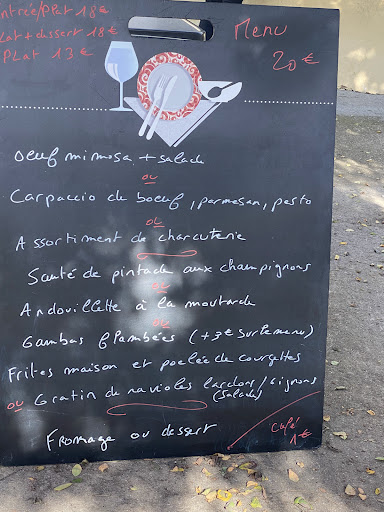 entrée/plat 18€
plat + dessert 18€
PLat 13€
Menu
20€
oeuf mimosa + salade
ou
Carpaccio de boeuf, parmesan, pesto
ou
Assortiment de charcuterie
Sauté de pintade aux champignons
ou
Andouillette à la moutarde
ou
Gambas flambées (+3€ sur le menu)
Frites maison et poêlée de courgettes
ou Gratin de ravioles lardons/oignons
(salade)
Fromage ou dessert
Café
1€